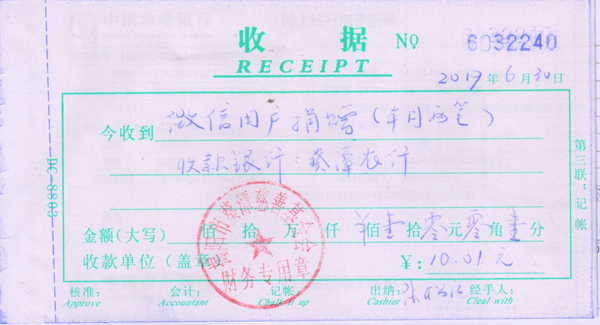 收 据 NO 6032240
RECEIPT
2019年6月30日
今收到 微信用户捐赠（本月两笔）
收款銀行：葵潭农行
金额(大写) 佰 拾 万 仟 佰壹拾零元零角壹分
收款单位（盖章） ¥: 10.01元
葵潭慈善基金会
财务专用章
核准: 会计: 记帐: 出纳: 经手人:
Approve Accountant Chalk it up Cashier Cleal with
DC-8803
第三联:记帐